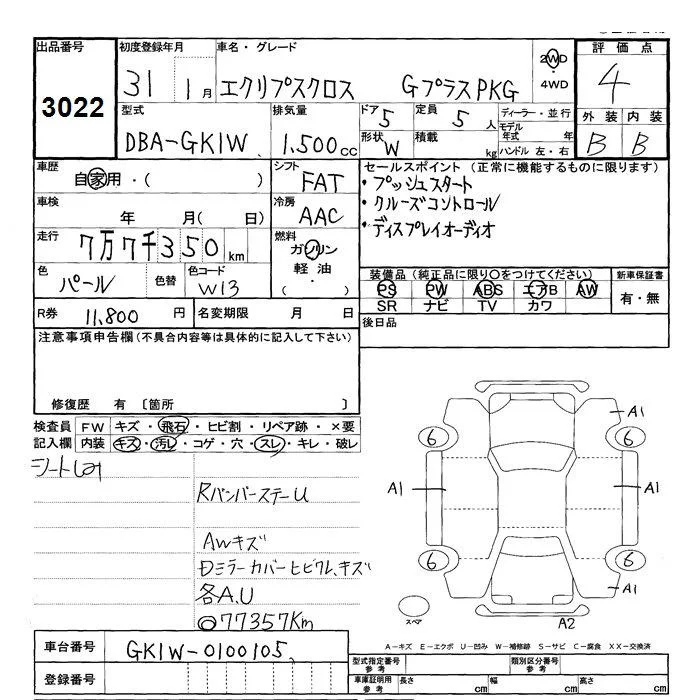 出品番号 初度登録年月 車名・グレード 評価点
3022 31 1月 エクリプスクロス GプラスPKG 2WD・4WD 4
型式 排気量 ドア 5 定員 5人 ディーラー・並行 外装 内装
DBA-GK1W 1.500cc 形状 W 積載 kg モデル年式 年 ハンドル 左・右 B B
車歴 自家用・( ) シフト FAT セールスポイント (正常に機能するものに限ります)
・プッシュスタート
車検 年 月( 日) 冷房 AAC ・クルーズコントロール
・ディスプレイオーディオ
走行 7万7千350km 燃料 ガソリン 軽油・( )
色 パール 色替 色コード W13 装備品(純正品に限り○をつけてください) 新車保証書
PS PW ABS エアB AW 有・無
SR ナビ TV カワ
R券 11,800円 名変期限 月 日 後日品
注意事項申告欄(不具合内容等は具体的に記入して下さい)
修復歴 有 〔箇所 〕
検査員 FW キズ・飛石・ヒビ割・リペア跡・×要
記入欄 内装 キズ・汚レ・コゲ・穴・スレ・キレ・破レ
RバンパーステーU
AWキズ
ミラーカバーヒビワレ、キズ
各A.U
◎77357Km
A1
6 6
A1 A1
6 6
A1
スペア A2
A-キズ E-エクボ U-凹み W-補修跡 S-サビ C-腐食 XX-交換済
車台番号 GK1W-0100105
登録番号
型式指定番号 参考 類別区分番号 参考
車庫証明用 参考 長さ cm 幅 cm 高さ cm